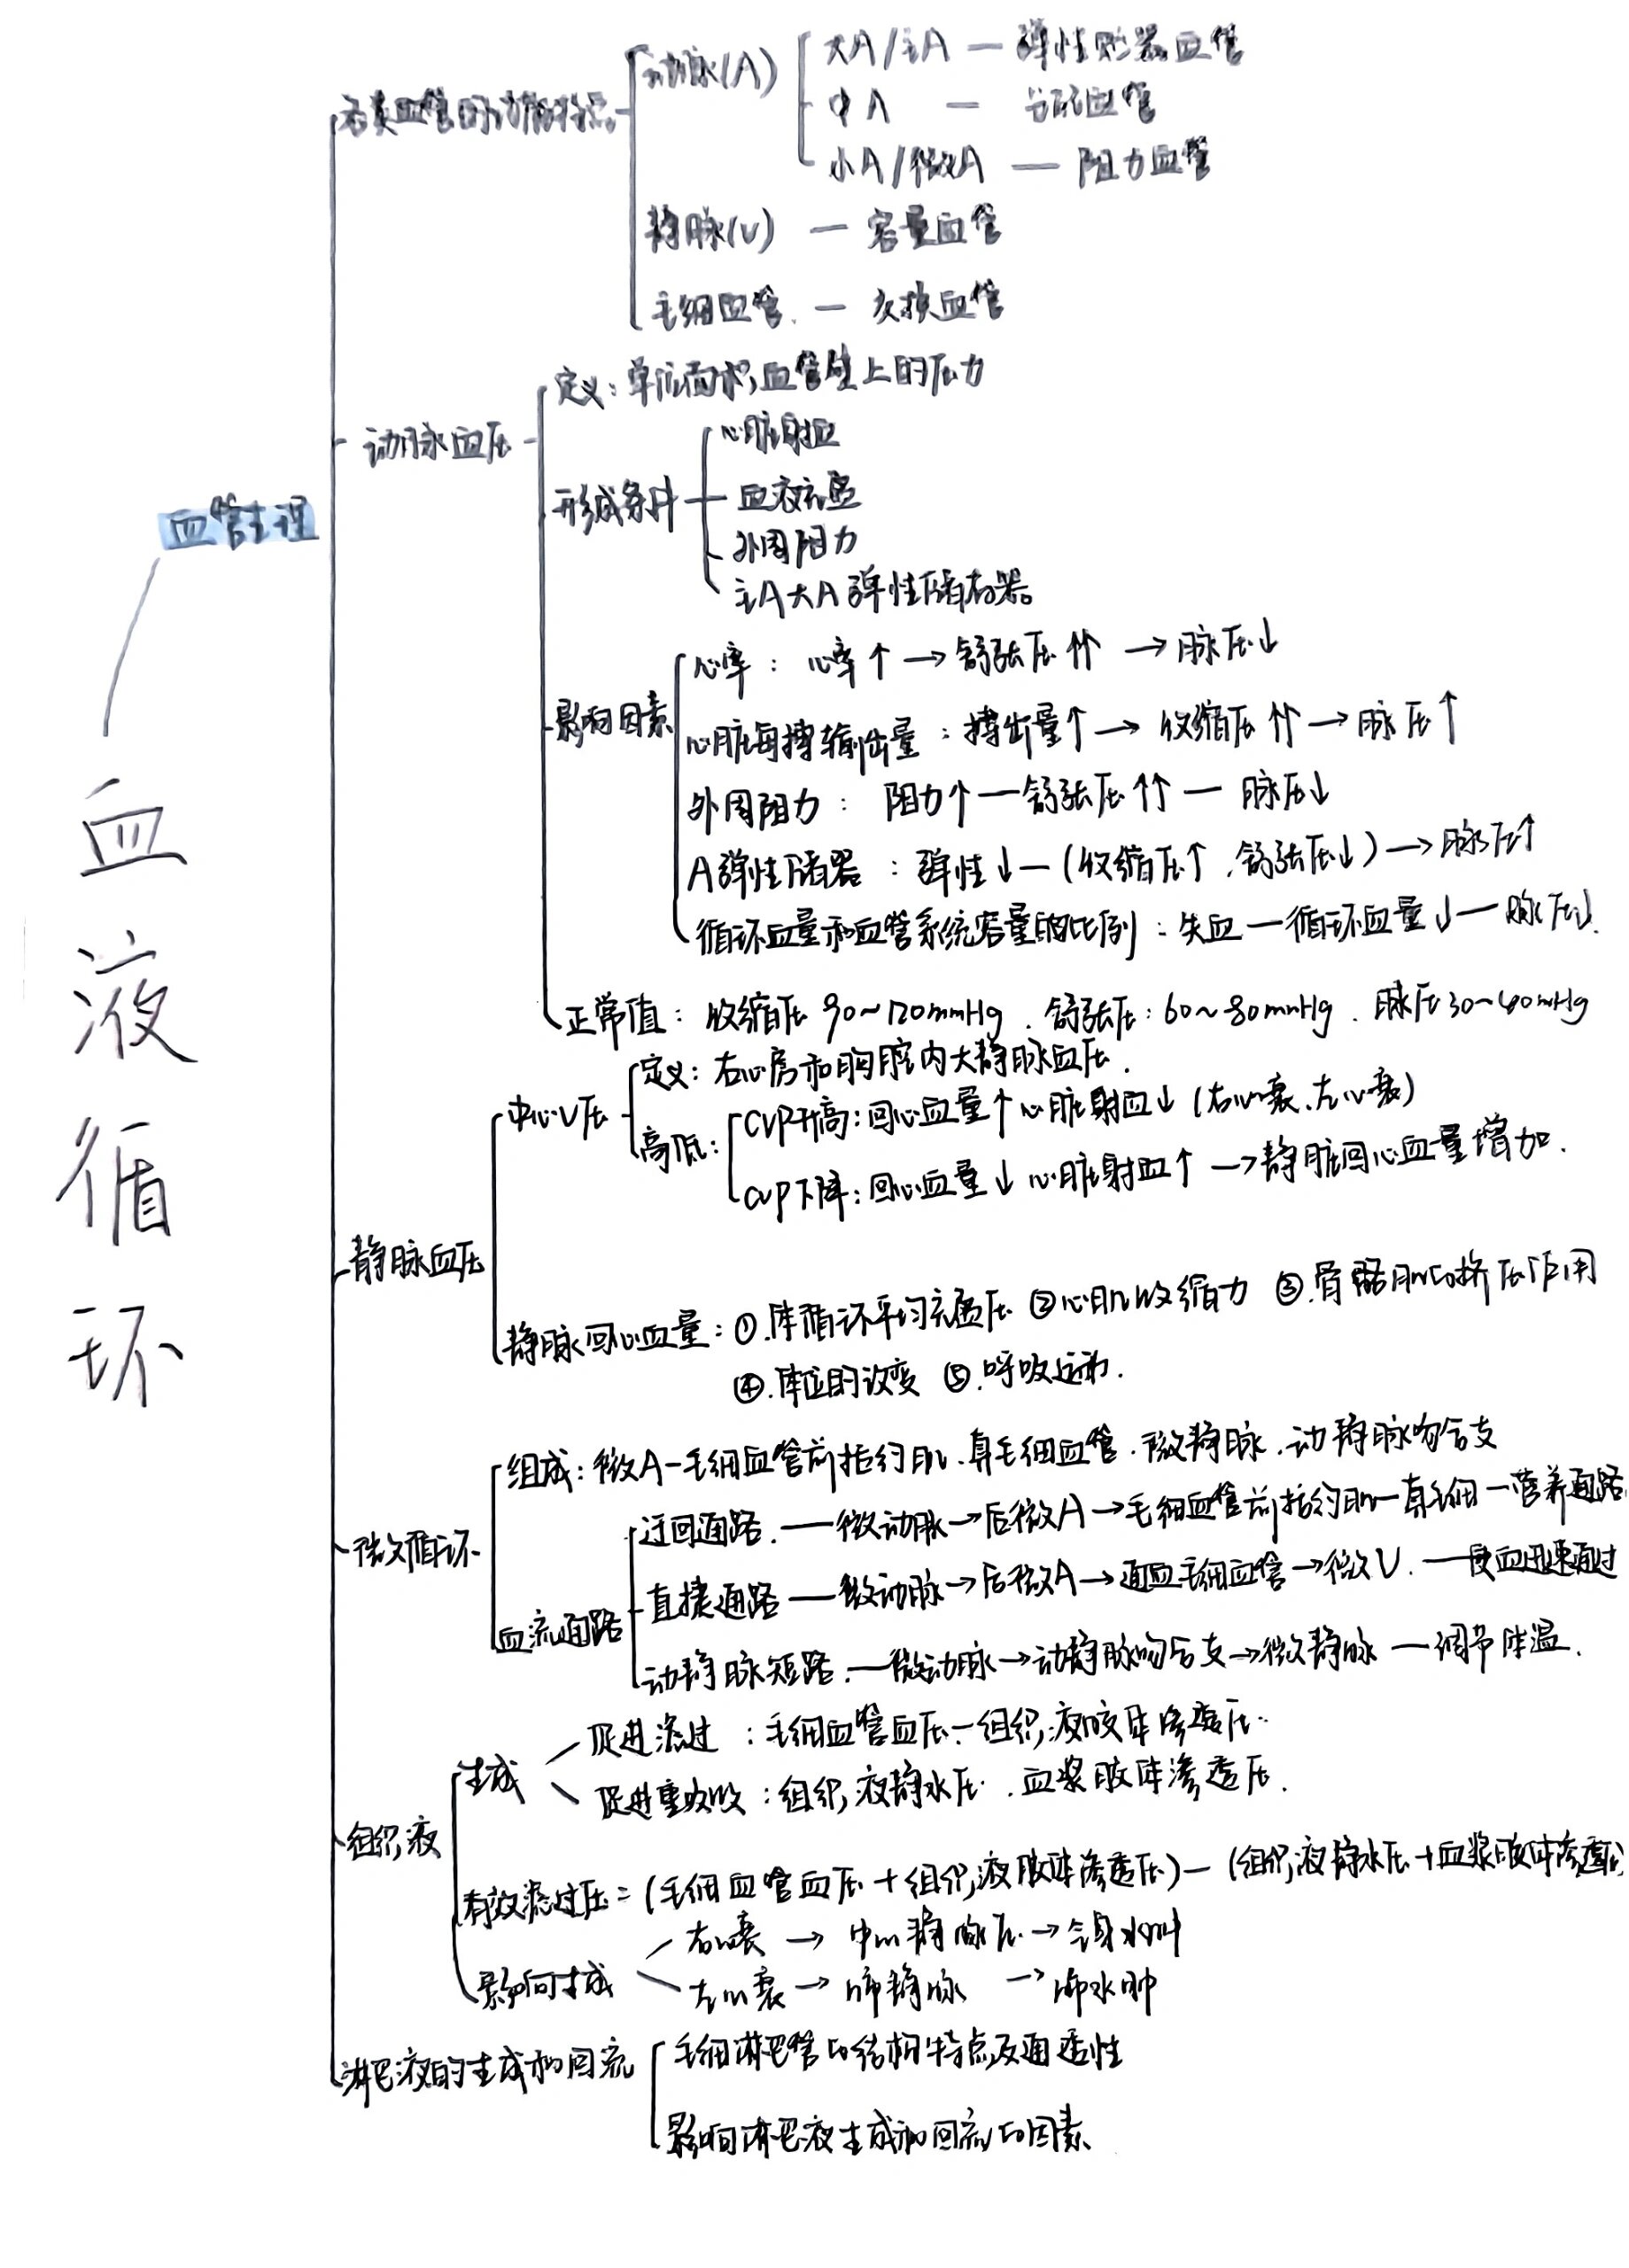 血液循环
血管生理
各类血管的功能特点
动脉(A)
大A/主A — 弹性贮器血管
中A — 分配血管
小A/微A — 阻力血管
静脉(V) — 容量血管
毛细血管. — 交换血管
动脉血压
定义: 单位面积血管壁上的压力
形成条件
心脏射血
血液充盈
外周阻力
主A大A弹性储存器
影响因素
心率: 心率↑ → 舒张压↑↑ → 脉压↓
心脏每搏输出量: 搏出量↑ → 收缩压↑↑ → 脉压↑
外周阻力: 阻力↑ — 舒张压↑↑ — 脉压↓
A弹性储器: 弹性↓ — (收缩压↑, 舒张压↓) → 脉压↑
循环血量和血管系统容量的比例: 失血 — 循环血量↓ — 脉压↓.
正常值: 收缩压 90~120mmHg. 舒张压: 60~80mmHg. 脉压30~40mmHg
静脉血压
中心V压
定义: 右心房和胸腔内大静脉血压.
高低:
CVP升高: 回心血量↑ 心脏射血↓ (右心衰、左心衰)
CVP下降: 回心血量↓ 心脏射血↑ → 静脏回心血量增加.
静脉回心血量: ①.体循环平均充盈压 ②心肌收缩力 ③.骨骼肌的挤压作用
④.体位的改变 ⑤.呼吸运动.
微循环
组成: 微A-毛细血管前括约肌、真毛细血管. 微静脉. 动静脉吻合支
血流通路
迂回通路. — 微动脉 → 后微A → 毛细血管前括约肌 — 真毛细 — 营养通路
直捷通路 — 微动脉 → 后微A → 通血毛细血管 → 微V. — 使血迅速通过
动静脉短路. — 微动脉 → 动静脉吻合支 → 微静脉 — 调节体温.
组织液
生成
促进滤过: 毛细血管血压. 组织液胶体渗透压.
促进重吸收: 组织液静水压. 血浆胶体渗透压.
有效滤过压 = (毛细血管血压 + 组织液胶体渗透压) — (组织液静水压 + 血浆胶体渗透压)
影响生成
右心衰 → 中心静脉压. → 全身水肿
左心衰 → 肺静脉 → 肺水肿
淋巴液的生成和回流
毛细淋巴管的结构特点及通透性
影响淋巴液生成和回流的因素